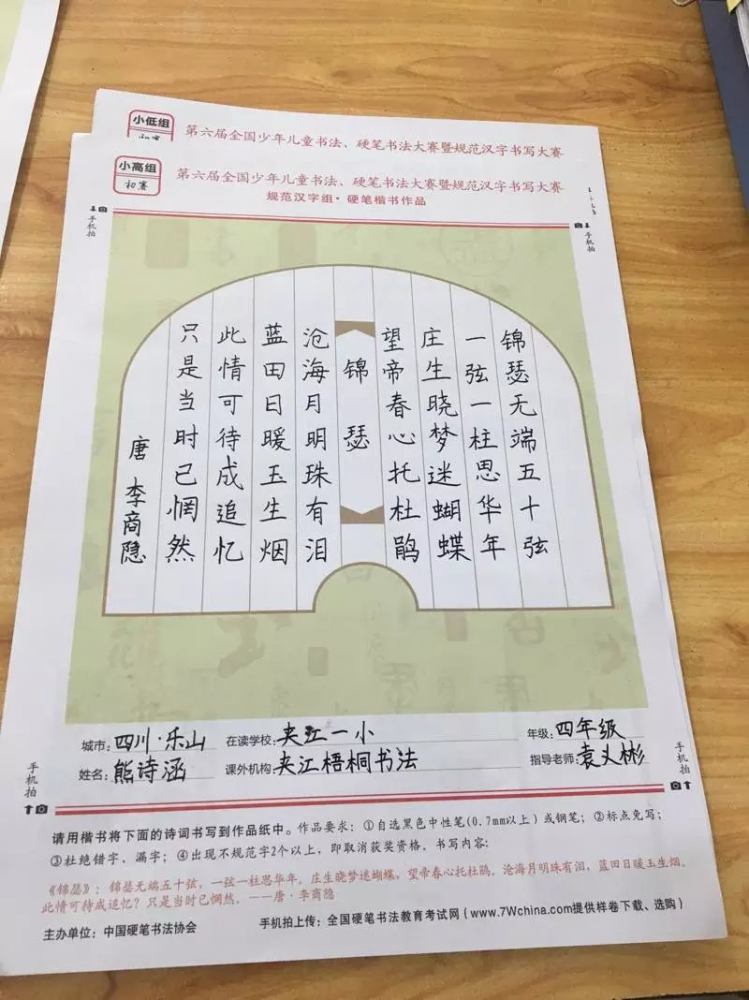 小低组
第六届全国少年儿童书法、硬笔书法大赛暨规范汉字书写大赛
小高组
初赛
第六届全国少年儿童书法、硬笔书法大赛暨规范汉字书写大赛
规范汉字组·硬笔楷书作品
手机拍
手机拍
锦瑟无端五十弦
一弦一柱思华年
庄生晓梦迷蝴蝶
望帝春心托杜鹃
锦瑟
沧海月明珠有泪
蓝田日暖玉生烟
此情可待成追忆
只是当时已惘然
唐 李商隐
城市：四川·乐山 在读学校：夹江一小 年级：四年级
姓名：熊诗涵 课外机构：夹江梧桐书法 指导老师：袁义彬
手机拍
手机拍
请用楷书将下面的诗词书写到作品纸中。作品要求：①自选黑色中性笔(0.7mm以上）或钢笔；②标点免写；
③杜绝错字、漏字；④出现不规范字2个以上，即取消获奖资格。书写内容：
《锦瑟》：锦瑟无端五十弦，一弦一柱思华年。庄生晓梦迷蝴蝶，望帝春心托杜鹃。沧海月明珠有泪，蓝田日暖玉生烟。
此情可待成追忆？只是当时已惘然。——唐·李商隐
主办单位：中国硬笔书法协会 手机拍上传：全国硬笔书法教育考试网（www.7Wchina.com提供样卷下载、选购）